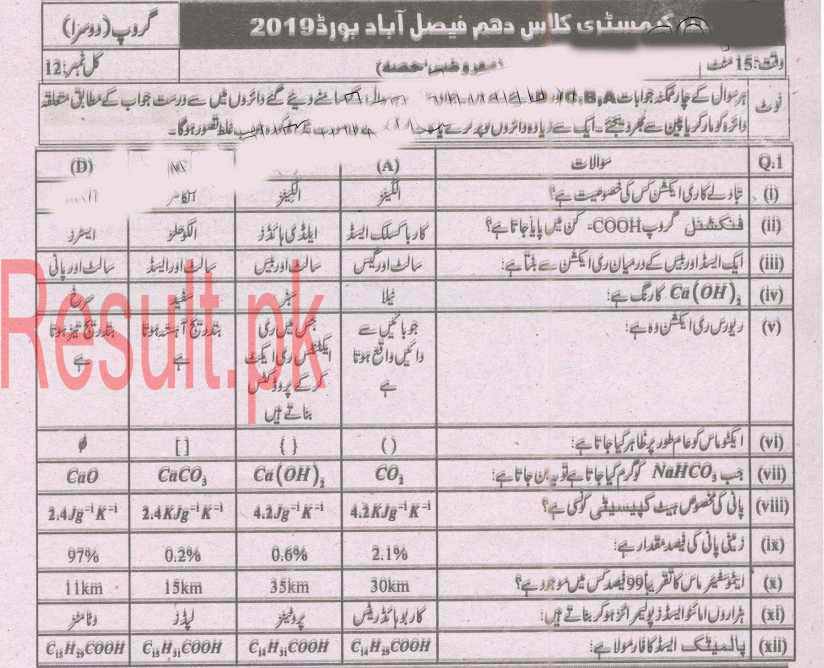 کیمسٹری کلاس دھم فیصل آباد بورڈ 2019 گروپ (دوسرا)
وقت: 15 منٹ (معروضی حصہ) کل نمبر: 12
نوٹ ہر سوال کے چار ممکنہ جوابات A,B,C دیئے گئے دائروں میں سے درست جواب کے مطابق متعلقہ
دائرہ کو مارکر یا پین سے بھر دیجئے۔ ایک سے زیادہ دائروں کو پُر کرنے غلط تصور ہوگا۔
Q.1 سوالات (A) (D)
(i) تبادلے کا ری ایکشن کس کی خصوصیت ہے؟ الکینز الکینز
(ii) فنکشنل گروپ COOH- کن میں پایا جاتا ہے؟ کاربا کسلک ایسڈ ایلڈی ہائڈز الکوحلز ایسٹرز
(iii) ایک ایسڈ اور بیس کے درمیان ری ایکشن سے بنتا ہے: سالٹ اور گیس سالٹ اور بیس سالٹ اور ایسڈ سالٹ اور پانی
(iv) Ca(OH)₂ کا رنگ ہے: نیلا سبز سفید سرخ
(v) ریورس ری ایکشن وہ ہے: جو بائیں سے دائیں واقع ہوتا ہے جس میں ری ایکٹنٹس ری ایکٹ کر کے پروڈکٹس بناتے ہیں بتدریج آہستہ ہوتا ہے بتدریج تیز ہوتا ہے
(vi) ایکٹو ماس کو عام طور پر ظاہر کیا جاتا ہے: ( ) { } [ ] ϕ
(vii) جب NaHCO₃ کو گرم کیا جاتا ہے تو یہ بن جاتا ہے: CO₂ Ca(OH)₂ CaCO₃ CaO
(viii) پانی کی مخصوص ہیٹ کپیسیٹی کونسی ہے؟ 4.2KJg⁻¹K⁻¹ 4.2Jg⁻¹K⁻¹ 2.4KJg⁻¹K⁻¹ 2.4Jg⁻¹K⁻¹
(ix) زمینی پانی کی فیصد مقدار ہے: 2.1% 0.6% 0.2% 97%
(x) ایٹموسفیئر ماس کا تقریباً 99 فیصد کس میں موجود ہے؟ 30km 35km 15km 11km
(xi) ہزاروں امائنو ایسڈز پولیمرائز ہو کر بناتے ہیں: کاربوہائڈریٹس پروٹینز لپڈز وٹامنز
(xii) پالمیٹک ایسڈ کا فارمولا ہے: C₁₄H₂₉COOH C₁₄H₃₁COOH C₁₅H₃₁COOH C₁₅H₂₉COOH
Result.pk